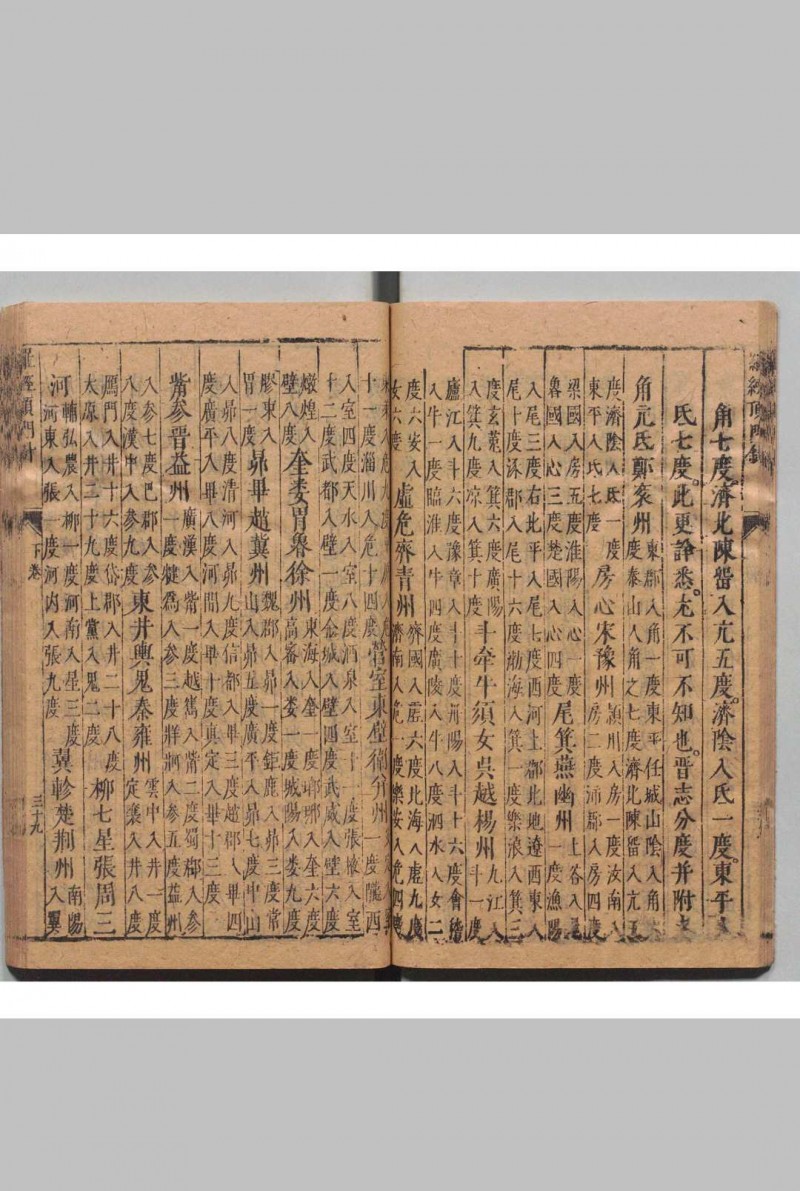 羅經頂門針
角七度濟北陳留入亢五度濟陰入氐一度東平入
氐七度此更詳悉尤不可不知也晉志分度并附
角亢氐鄭兗州
東郡入角一度東平任城山陰入角六
度泰山入角之七度濟北陳留入亢五
度濟陰入氐一度
東平入氐七度
房心宋豫州
潁川入房一度汝南入
房二度沛郡入房四度
梁國入房五度淮陽入心一度
魯國入心三度楚國入心四度
尾箕燕幽州
上谷入尾
一度漁陽
入尾三度右北平入尾七度西河上郡北地遼西東入
尾十度涿郡入尾十六度渤海入箕一度樂浪入箕三
度玄菟入箕六度廣陽
入箕九度凉入箕十度
斗牽牛須女吳越楊州
九江入
斗一度
廬江入斗六度豫章入斗十度丹陽入斗十六度會稽
入牛一度臨淮入牛四度廣陵入牛八度泗水入女二
度六安入
女六度
虛危齊青州
齊國入虛六度北海入虛九度
濟南入危一度樂安入危四度
十一度淄川入危十四度
營室東壁衛并州
一度隴西
入室四度天水入室八度酒泉入室十一度張掖入室
十二度武都入壁一度金城入壁四度武威入壁六度
燉煌入
壁八度
奎婁胃魯徐州
東海入奎一度瑯琊入奎六度
高密入婁一度城陽入婁九度
膠東入
胃一度
昴畢趙冀州
魏郡入昴一度鉅鹿入昴三度常
山入昴五度廣平入昴七度中山
入昴八度清河入昴九度信都入畢三度趙郡入畢四
度廣平入畢八度河間入畢十度真定入畢十三度
觜參晉益州
廣漢入觜一度越嶲入觜二度蜀郡入參
一度犍為入參三度牂牁入參五度益州
入參七度巴郡入參
八度漢中入參九度
東井輿鬼秦雍州
雲中入井一度
定襄入井八度
鴈門入井十六度岱郡入井二十八度
太原入井二十九度上黨入鬼二度
柳七星張周三
河
輔弘農入柳一度河南入星三度
河東入張一度河內入張九度
翼軫楚荊州
南陽
入翼
羅經頂門針
下卷
三十九